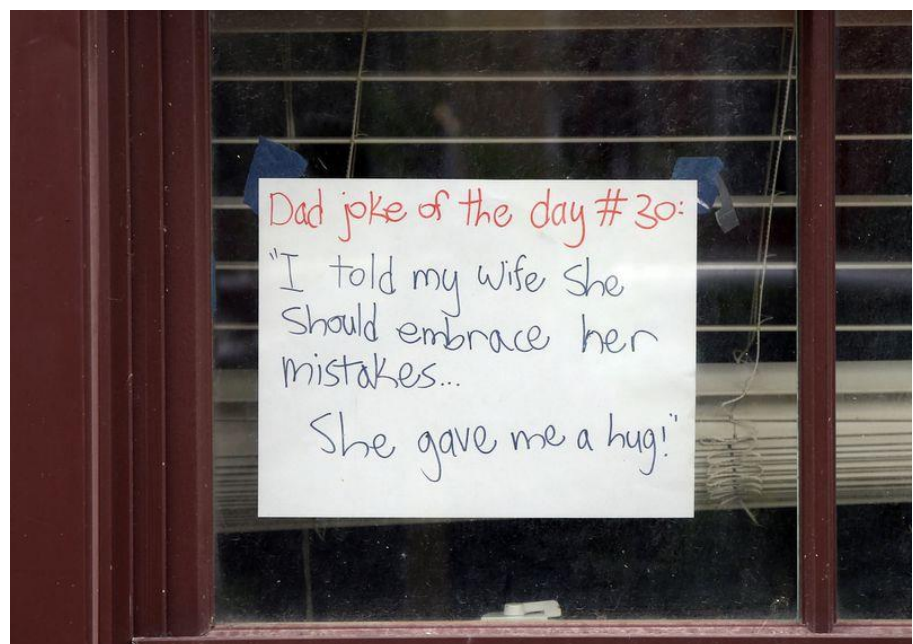 Dad joke of the day #30:
"I told my wife she
should embrace her
mistakes...
She gave me a hug!"